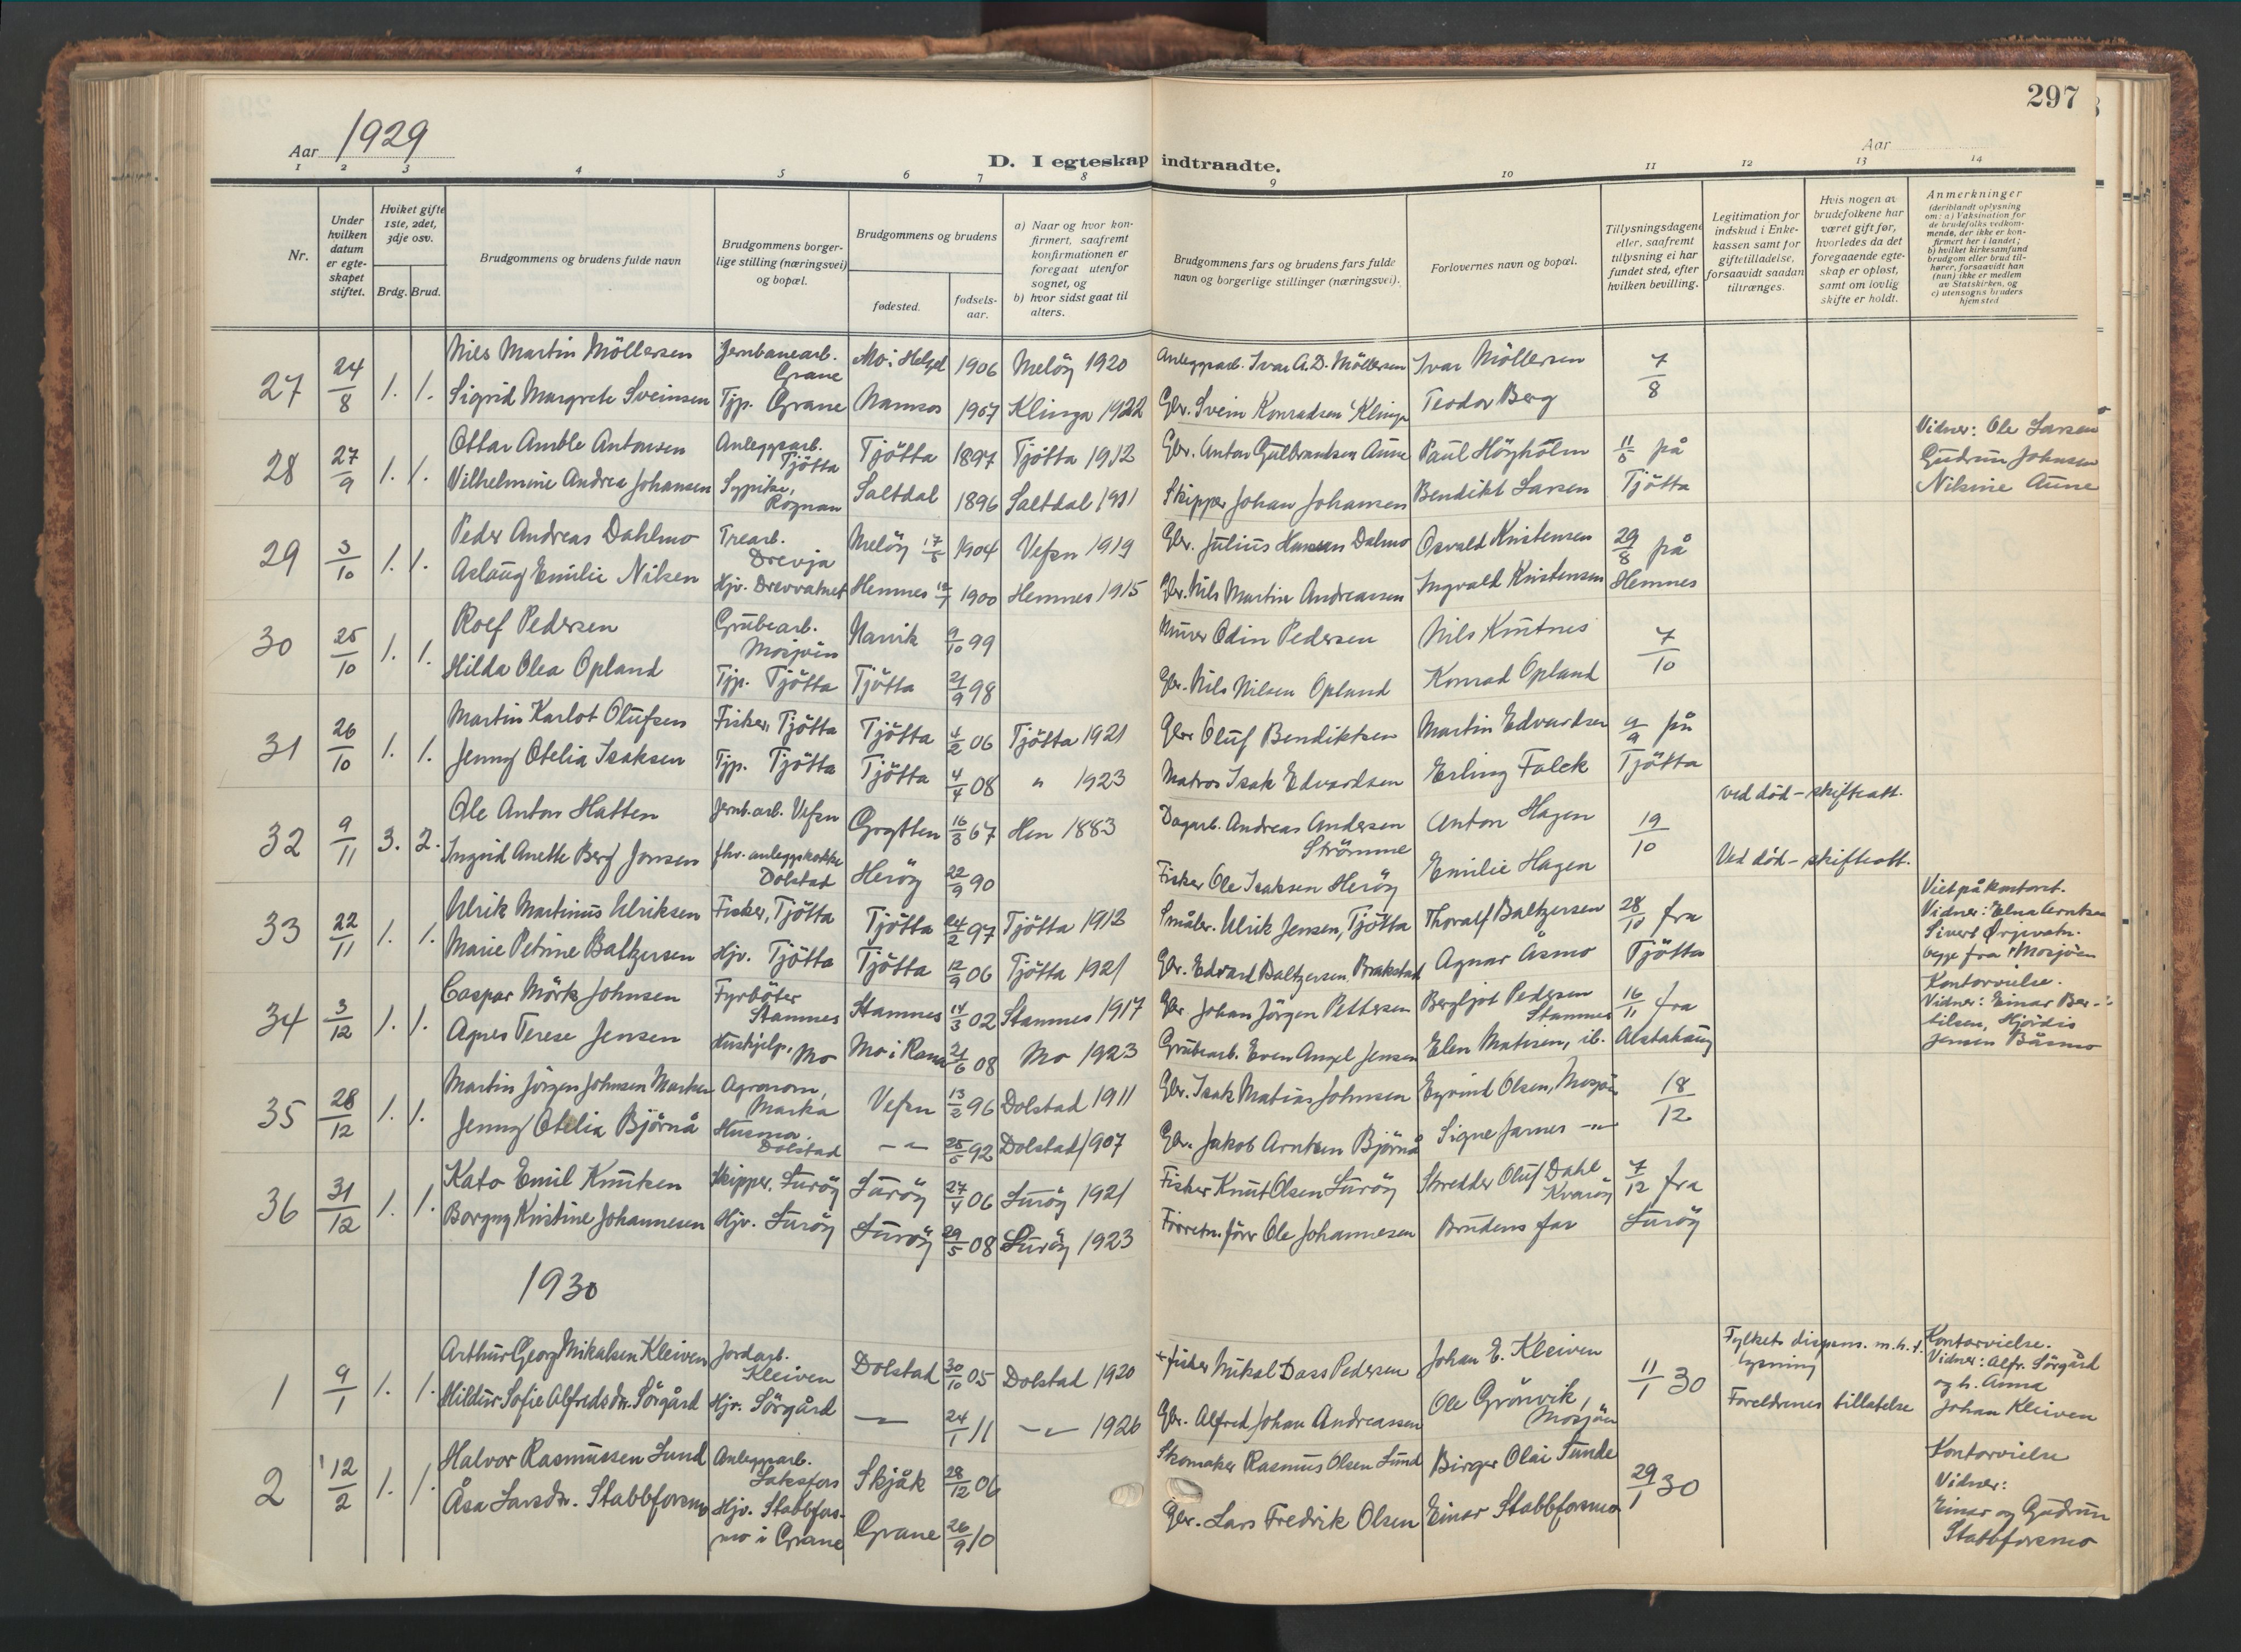 297
Aar 1929
Aar
D. I egteskap indtraadte.
1 2 3 4 5 6 7 8 9 10 11 12 13 14
Nr.
Under hvilken datum er egteskapet stiftet.
Hviket gifte 1ste, 2det, 3dje osv.
Brdg. Brud.
Brudgommens og brudens fulde navn
Brudgommens borgerlige stilling (næringsvei) og bopæl.
Brudgommens og brudens
fødested.
fødselsaar.
a) Naar og hvor konfirmert, saafremt konfirmationen er foregaat utenfor sognet, og
b) hvor sidst gaat til alters.
Brudgommens fars og brudens fars fulde navn og borgerlige stillinger (næringsvei).
Forlovernes navn og bopæl.
Tillysningsdagene eller, saafremt tillysning ei har fundet sted, efter hvilken bevilling.
Legitimation for indskud i Enkekassen samt for giftetilladelse, forsaavidt saadan tiltrænges.
Hvis nogen av brudefolkene har været gift før, hvorledes da det foregaaende egteskap er opløst, samt om lovlig skifte er holdt.
Anmerkninger
(deriblandt oplysning om: a) Vaksination for de brudefolks vedkommende, der ikke er konfirmert her i landet; b) hvilket kirkesamfund brudgom eller brud tilhører, forsaavidt han (nun) ikke er medlem av Statskirken, og c) utensogns bruders hjemsted
27 24/8 1. 1. Nils Martin Möllersen Jernbanearb. Grane Mo i Helgel 1906 Meløy 1920 Anleggsarb. Ivar A. D. Möllersen Ivar Möllersen 7/8
Sigrid Margrete Sveinsen Tjp. Grane Namsos 1907 Klinga 1922 Gbr. Svein Konradsen Klinga Teodor Berg
28 27/9 1. 1. Ottar Amble Antonsen Anleggsarb. Tjötta Tjötta 1897 Tjötta 1912 Gbr. Anton Gulbrandsen Aune Paul Höyholm på Tjötta Vidner: Ole Larsen
Vilhelmine Andrea Johansen Sypike, Rognan Saltdal 1896 Saltdal 1911 Skipper Johan Johansen Bendikt Larsen Gudrun Johnsen
Nilsine Aune
29 3/10 1. 1. Peder Andreas Dahlmo Trearb. Drevja Meløy 1904 Vefsn 1919 Gbr. Julius Hansen Dalmo Osvald Kristensen 29/8 på Hemnes
Aslaug Emilie Nilsen Hjv. Drevvatnet Hemnes 1900 Hemnes 1915 Gbr. Nils Martin Andreassen Ingvald Kristensen
30 25/10 1. 1. Rolf Pedersen Grubearb. Mosjøen Narvik 9/10 99 Murer Odin Pedersen Nils Knutnes 7/10
Hilda Olea Opland Tjp. Tjötta Tjötta 21/9 98 Gbr. Nils Nilsen Opland Konrad Opland
31 26/10 1. 1. Martin Karlot Olufsen Fisker, Tjötta Tjötta 4/2 06 Tjötta 1921 Gbr Oluf Bendiktsen Martin Edvardsen på Tjötta
Jenny Otelia Isaksen Tjp. Tjötta Tjötta 4/4 08 " 1923 Matros Isak Edvardsen Erling Falck
32 9/11 3. 2. Ole Anton Hatten Jernb.arb. Vefsn Grytten 16/3 67 Hen 1883 Dagarb. Andreas Andersen Strömme Anton Hagen 19/10 ved død - skifteatt.
Ingrid Anette Berg Jonsen fhv. anleggskokke Dolstad Herøy 22/9 90 Fisker Ole Isaksen Herøy Emilie Hagen Ved død - skifteatt.
33 22/11 1. 1. Ulrik Martinus Ulriksen Fisker, Tjötta Tjötta 24/2 97 Tjötta 1912 Småbr. Ulrik Jensen, Tjötta Thoralf Baltzersen 28/10 fra Tjötta Viet på kontoret.
Marie Petrine Baltzersen Hjv. Tjötta Tjötta 12/9 06 Tjötta 1921 Gbr. Edvard Baltzersen, Brakstad Agnar Åsmo Vidner: Elna Arntsen
Sivert Ørjevatn.
begge fra Mosjöen
34 3/12 1. 1. Caspar Mörk Johnsen Fyrböter Stamnes Stamnes 14/3 02 Stamnes 1917 Gbr Johan Jörgen Pettersen Bergljot Pedersen Stamnes 16/11 fra Alstahaug Kontorvielse.
Agnes Terese Jensen Hushjelp, Mo Mo i Rana 21/6 08 Mo 1923 Grubearb. Even Angel Jensen Elen Matisen, ib. Vidner: Einar Bertilsen, Hjördis
Jensen Båsmo
35 28/12 1. 1. Martin Jörgen Johnsen Marken Agronom, Marka Vefsn 13/2 96 Dolstad 1911 Gbr. Isak Matias Johnsen Eyvind Olsen, Mosjøen 18/12
Jenny Otelia Björnå Husma. Dolstad - " - 25/5 92 Dolstad 1907 Gbr. Jakob Arntsen Björnå Signe Jarnes - " -
36 31/12 1. 1. Kato Emil Knutsen Skipper, Lurøy Lurøy 27/4 06 Lurøy 1921 Fisker Knut Olsen Lurøy Skredder Oluf Dahl Kvarøy 7/12 fra Lurøy
Borgny Kristine Johannesen Hjv. Lurøy Lurøy 29/5 08 Lurøy 1923 Forretn.förer Ole Johannesen Brudens far
1930
1 9/1 1. 1. Arthur Georg Mikalsen Kleiven Jordarb. Kleiven Dolstad 30/10 05 Dolstad 1920 fisker Mikal Dass Pedersen Johan E. Kleiven 11/1 30 Fylkets dispens. m.h.t. lysning Kontorvielse.
Hildur Sofie Alfredsdr. Sörgård Hjv. Sörgård - " - 24/1 11 - " - 1926 Gbr. Alfred Johan Andreassen Ole Grönvik, Mosjöen Foreldrenes tillatelse Vidner: Alfr. Sörgård
og h. Anna
Johan Kleiven
2 12/2 1. 1. Halvor Rasmussen Lund Anleggsarb. Laksfors Skjåk 28/12 06 Skomaker Rasmus Olsen Lund Birger Olai Sunde 29/1 30 Kontorvielse
Åsa Larsdr. Stabbforsmo Hjv. Stabbforsmo i Grane Grane 26/9 10 Gbr. Lars Fredrik Olsen Einar Stabbforsmo Vidner:
Einar og Gudrun
Stabbforsmo